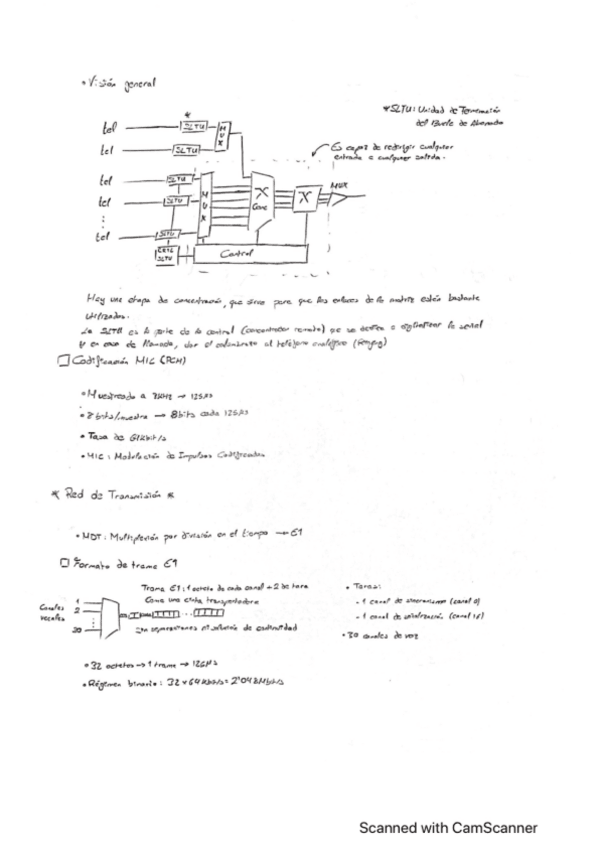 • Visión general
* SLTU: Unidad de Terminación
del Bucle de Abonado
*
tel SLTU MUX
tel SLTU
Es capaz de redirigir cualquier
entrada a cualquier salida.
tel SLTU MUX X Conc X MUX
tel SLTU
tel SLTU
SLTU Control
Hay una etapa de concentración, que sirve para que los enlaces de la matriz estén bastante
utilizados.
La SLTU es la parte de la central (concentrador remoto) que se dedica a digitalizar la señal
y en caso de llamada, dar el al teléfono analógico
Codificación MIC (PCM)
• Muestreado a 8KHz → 125µs
• 8 bits/muestra → 8bits cada 125µs
• Tasa de 64kbit/s
• MIC: Modulación de Impulsos Codificados
* Red de Transmisión *
• MDT: Multiplexión por división en el tiempo → E1
Formato de trama E1
Trama E1: 1 octeto de cada canal + 2 de tara
Como una cinta transportadora
Canales
vocales
1
2
30
sin separaciones ni solución de continuidad
• Taras:
- 1 canal de sincronismo (canal 0)
- 1 canal de señalización (canal 16)
• 30 canales de voz
• 32 octetos → 1 trama → 125µs
• Régimen binario: 32 × 64 kbit/s = 2'048 Mbit/s
Scanned with CamScanner